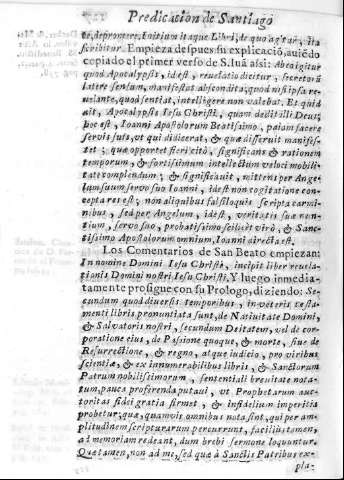 Predicacion de Santiago
te, depromere. Initium itaque Libri, de quo agitur, ita
scribitur. Empieza despues su explicació, auiédo
copiado el primer verso de S. Iuá assi: Abcoigitur
quod Apocalypsis, id est, reuelatio dicitur, secretorũ
latere sensum, manifestat absconditą, quod nisi ipsa re-
uelante, quod sentiat, intelligere non valebat. Et quid
ait, Apocalypsis Iesu Christi, quam dedit illi Deus;
hoc est, Ioanni Apostolorum Beatissimo, palam facere
servis suis, vt qui didicerat, & quæ disseruit manifes-
tet; quæ oportet fieri citò, significans & rationem
temporum, & fortissimum intellectum veloci mobili-
tate complendum; & significauit, mittens per Ange-
lum suum servo suo Ioanni, id est non cogitatione con-
cepta res est; non aliquibus falsiloquis scripta carmi-
nibus, sed per Angelum, id est, veritatis suæ nun-
tium, servo suo, probatissimo scilicet virò, & Sanc-
tissimo Apostolorum omnium, Ioanni directa est.
Los Comentarios de San Beato empiezan:
In nomine Domini Iesu Christi, incipit liber reuela-
tionis Domini nostri Iesu Christi. Y luego inmedia-
tamente prosigue con su Prologo, diziendo: Se-
cundum quod diuersis temporibus, in veteris testa-
menti libris pronuntiata sunt, de Natiuitate Domini,
& Salvatoris nostri, secundum Deitatem, vel de cor-
poratione eius, de Passione quoque, & morte, siue de
Resurrectione, & regno, atque iudicio, pro viribus
scientiæ, & ex innumerabilibus libris, & Sanctorum
Patrum nobilissimorum, sententiali breuitate nota-
tum, pauca proferenda putaui, vt Prophetarum auc-
toritas fidei gratia firmet, & infidelium imperitia
probetur; quæ, quamvis omnibus nota sint, qui per am-
plitudinem scripturarum percurrunt, faciliùs tamen,
ad memoriam redeant, dum brebi sermone loquuntur.
Quæ tamen, non ad me, sed quæ à Sanctis Patribus ex-
pla-